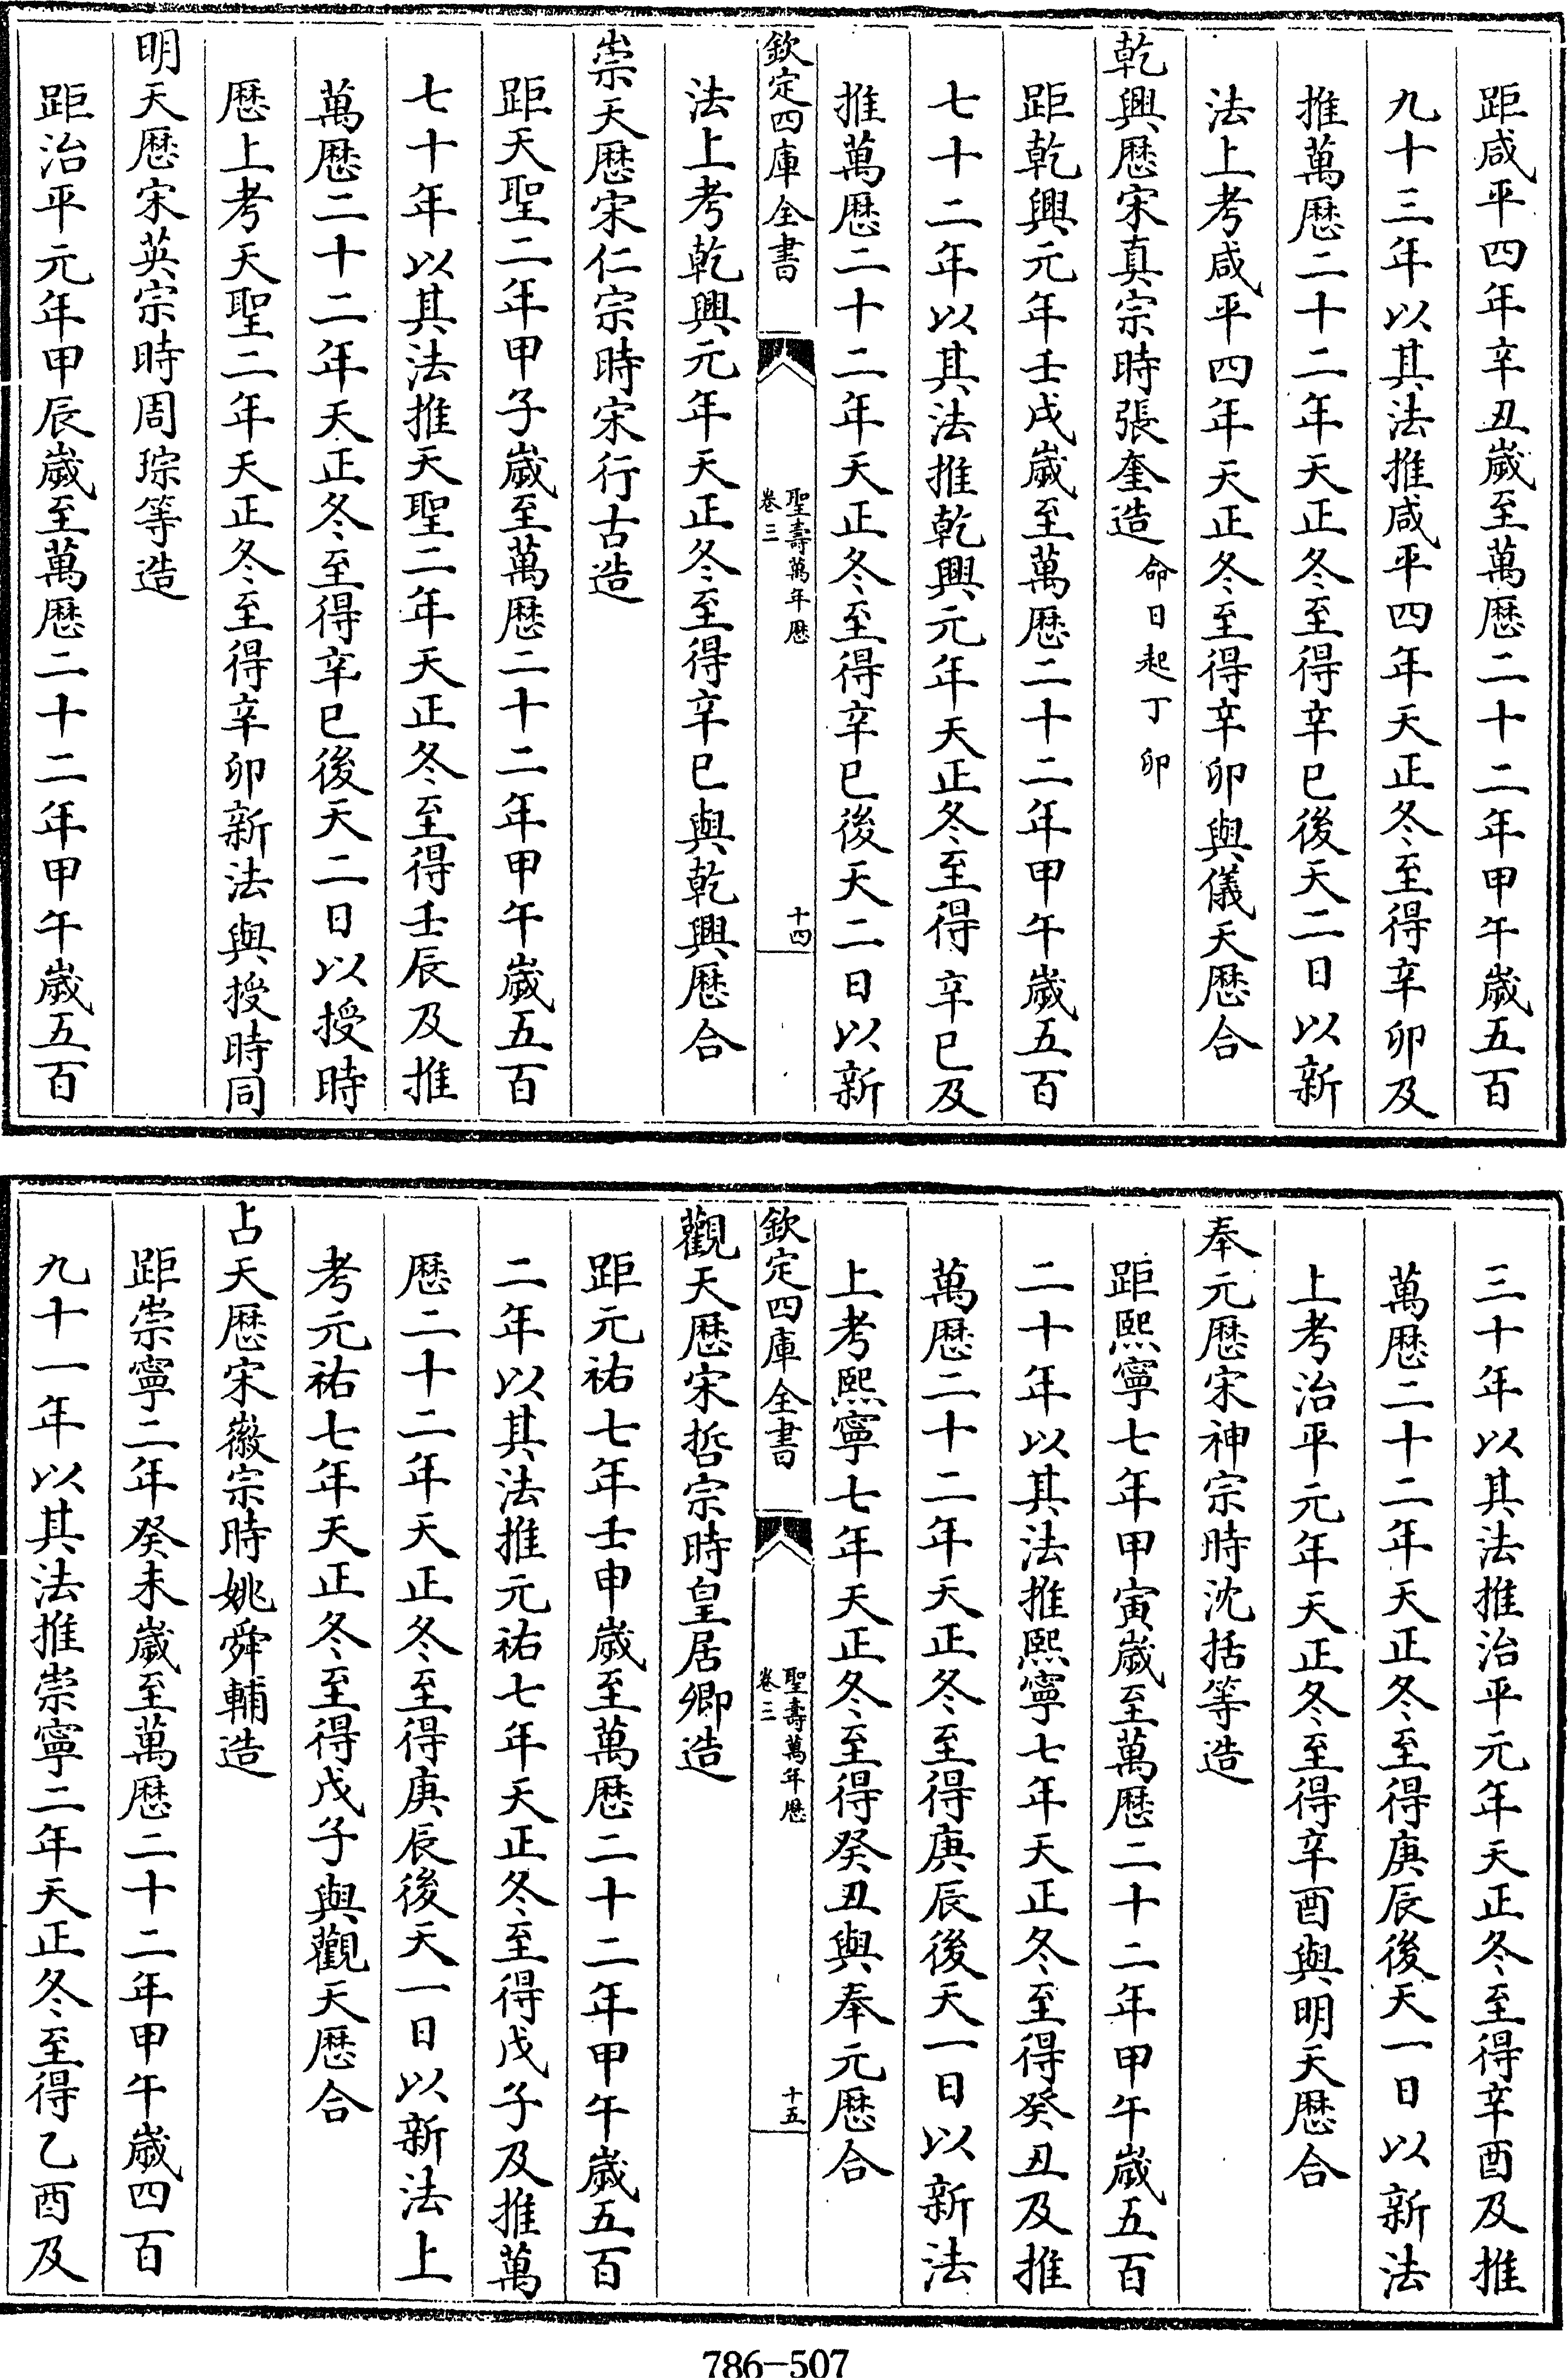 距咸平四年辛丑歲至萬厯二十二年甲午歲五百
九十三年以其法推咸平四年天正冬至得辛卯及
推萬厯二十二年天正冬至得辛巳後天二日以新
法上考咸平四年天正冬至得辛卯與儀天厯合
乾興厯宋真宗時張奎造命日起丁卯
距乾興元年壬戌歲至萬厯二十二年甲午歲五百
七十二年以其法推乾興元年天正冬至得辛巳及
推萬厯二十二年天正冬至得辛巳後天二日以新
欽定四庫全書
聖壽萬年厯
卷三
十四
法上考乾興元年天正冬至得辛巳與乾興厯合
崇天厯宋仁宗時宋行古造
距天聖二年甲子歲至萬厯二十二年甲午歲五百
七十年以其法推天聖二年天正冬至得壬辰及推
萬厯二十二年天正冬至得辛巳後天二日以授時
厯上考天聖二年天正冬至得辛卯新法與授時同
明天厯宋英宗時周琮等造
距治平元年甲辰歲至萬厯二十二年甲午歲五百
三十年以其法推治平元年天正冬至得辛酉及推
萬厯二十二年天正冬至得庚辰後天一日以新法
上考治平元年天正冬至得辛酉與明天厯合
奉元厯宋神宗時沈括等造
距熙寧七年甲寅歲至萬厯二十二年甲午歲五百
二十年以其法推熙寧七年天正冬至得癸丑及推
萬厯二十二年天正冬至得庚辰後天一日以新法
上考熙寧七年天正冬至得癸丑與奉元厯合
欽定四庫全書
聖壽萬年厯
卷三
十五
觀天厯宋哲宗時皇居卿造
距元祐七年壬申歲至萬厯二十二年甲午歲五百
二年以其法推元祐七年天正冬至得戊子及推萬
厯二十二年天正冬至得庚辰後天一日以新法上
考元祐七年天正冬至得戊子與觀天厯合
占天厯宋徽宗時姚舜輔造
距崇寧二年癸未歲至萬厯二十二年甲午歲四百
九十一年以其法推崇寧二年天正冬至得乙酉及
786-507